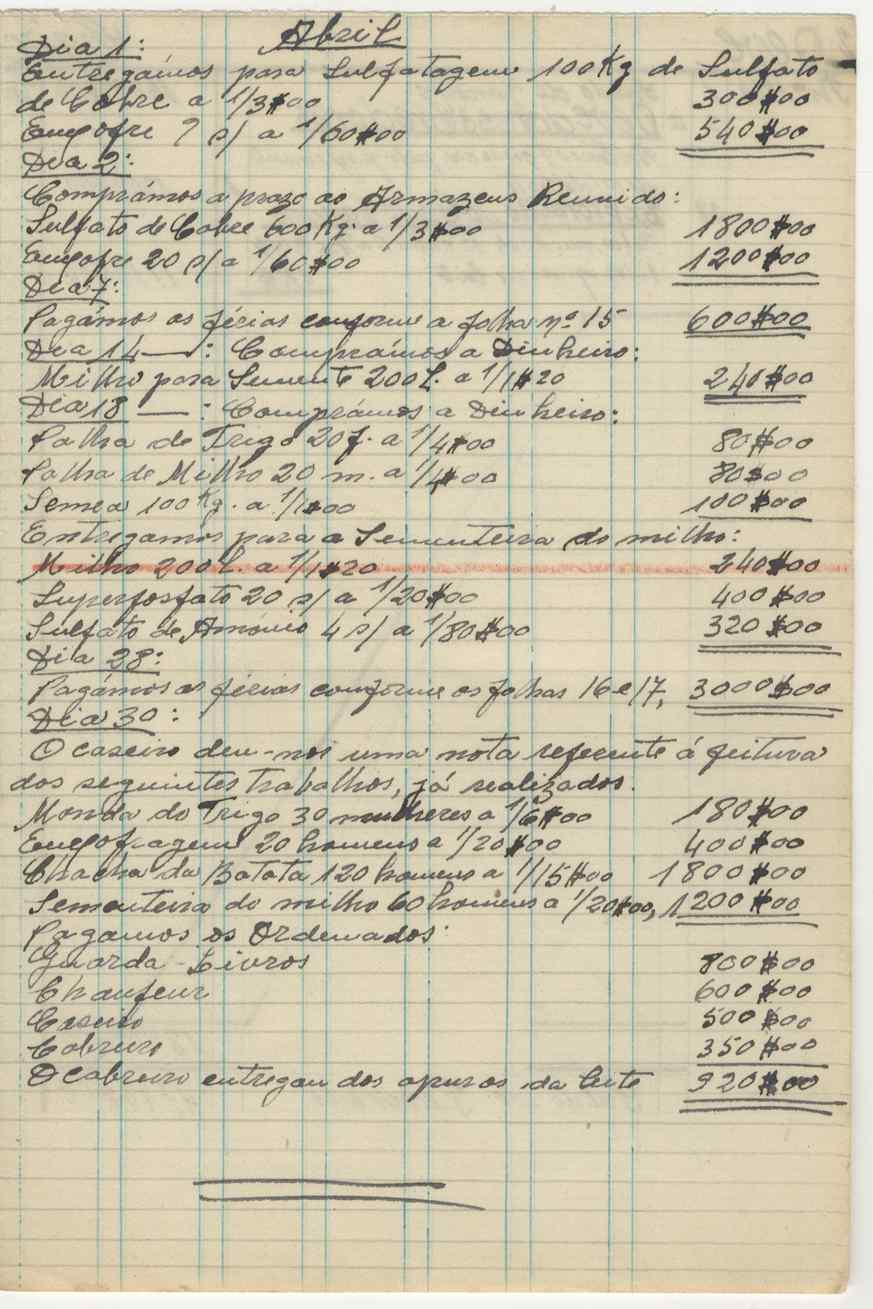 Abril
Dia 1:
Entregámos para Sulfatagem 100 Kg de Sulfato
de Cobre a 1/3$00 300$00
Enxofre 9 s/ a 1/60$00 540$00
Dia 2:
Comprámos a prazo ao Armazens Reunido:
Sulfato de Cobre 600 Kg. a 1/3$00 1800$00
Enxofre 20 s/ a 1/60$00 1200$00
Dia 7:
Pagámos as férias conforme a folha nº 15 600$00
Dia 14 —: Comprámos a Dinheiro:
Milho para Semente 200 l. a 1/1$20 240$00
Dia 18 —: Comprámos a Dinheiro:
Palha de Trigo 20 f. a 1/4$00 80$00
Palha de Milho 20 m. a 1/4$00 80$00
Semea 100 Kg. a 1/1$00 100$00
Entregamos para a Sementeira do milho:
Milho 200 l. a 1/1$20 240$00
Superfosfato 20 s/ a 1/20$00 400$00
Sulfato de Amonio 4 s/ a 1/80$00 320$00
Dia 28:
Pagámos as férias conforme as folhas 16 e 17, 3000$00
Dia 30:
O caseiro deu-nos uma nota referente á feitura
dos seguintes trabalhos, já realizados.
Monda do Trigo 30 mulheres a 1/6$00 180$00
Enxofragem 20 homens a 1/20$00 400$00
Chacha da Batata 120 homens a 1/15$00 1800$00
Sementeira do milho 60 homens a 1/20$00, 1200$00
Pagamos os Ordenados:
Guarda-Livros 800$00
Chaufeur 600$00
Caseiro 500$00
Cabreiro 350$00
O cabreiro entregou dos apuros da leite 920$00